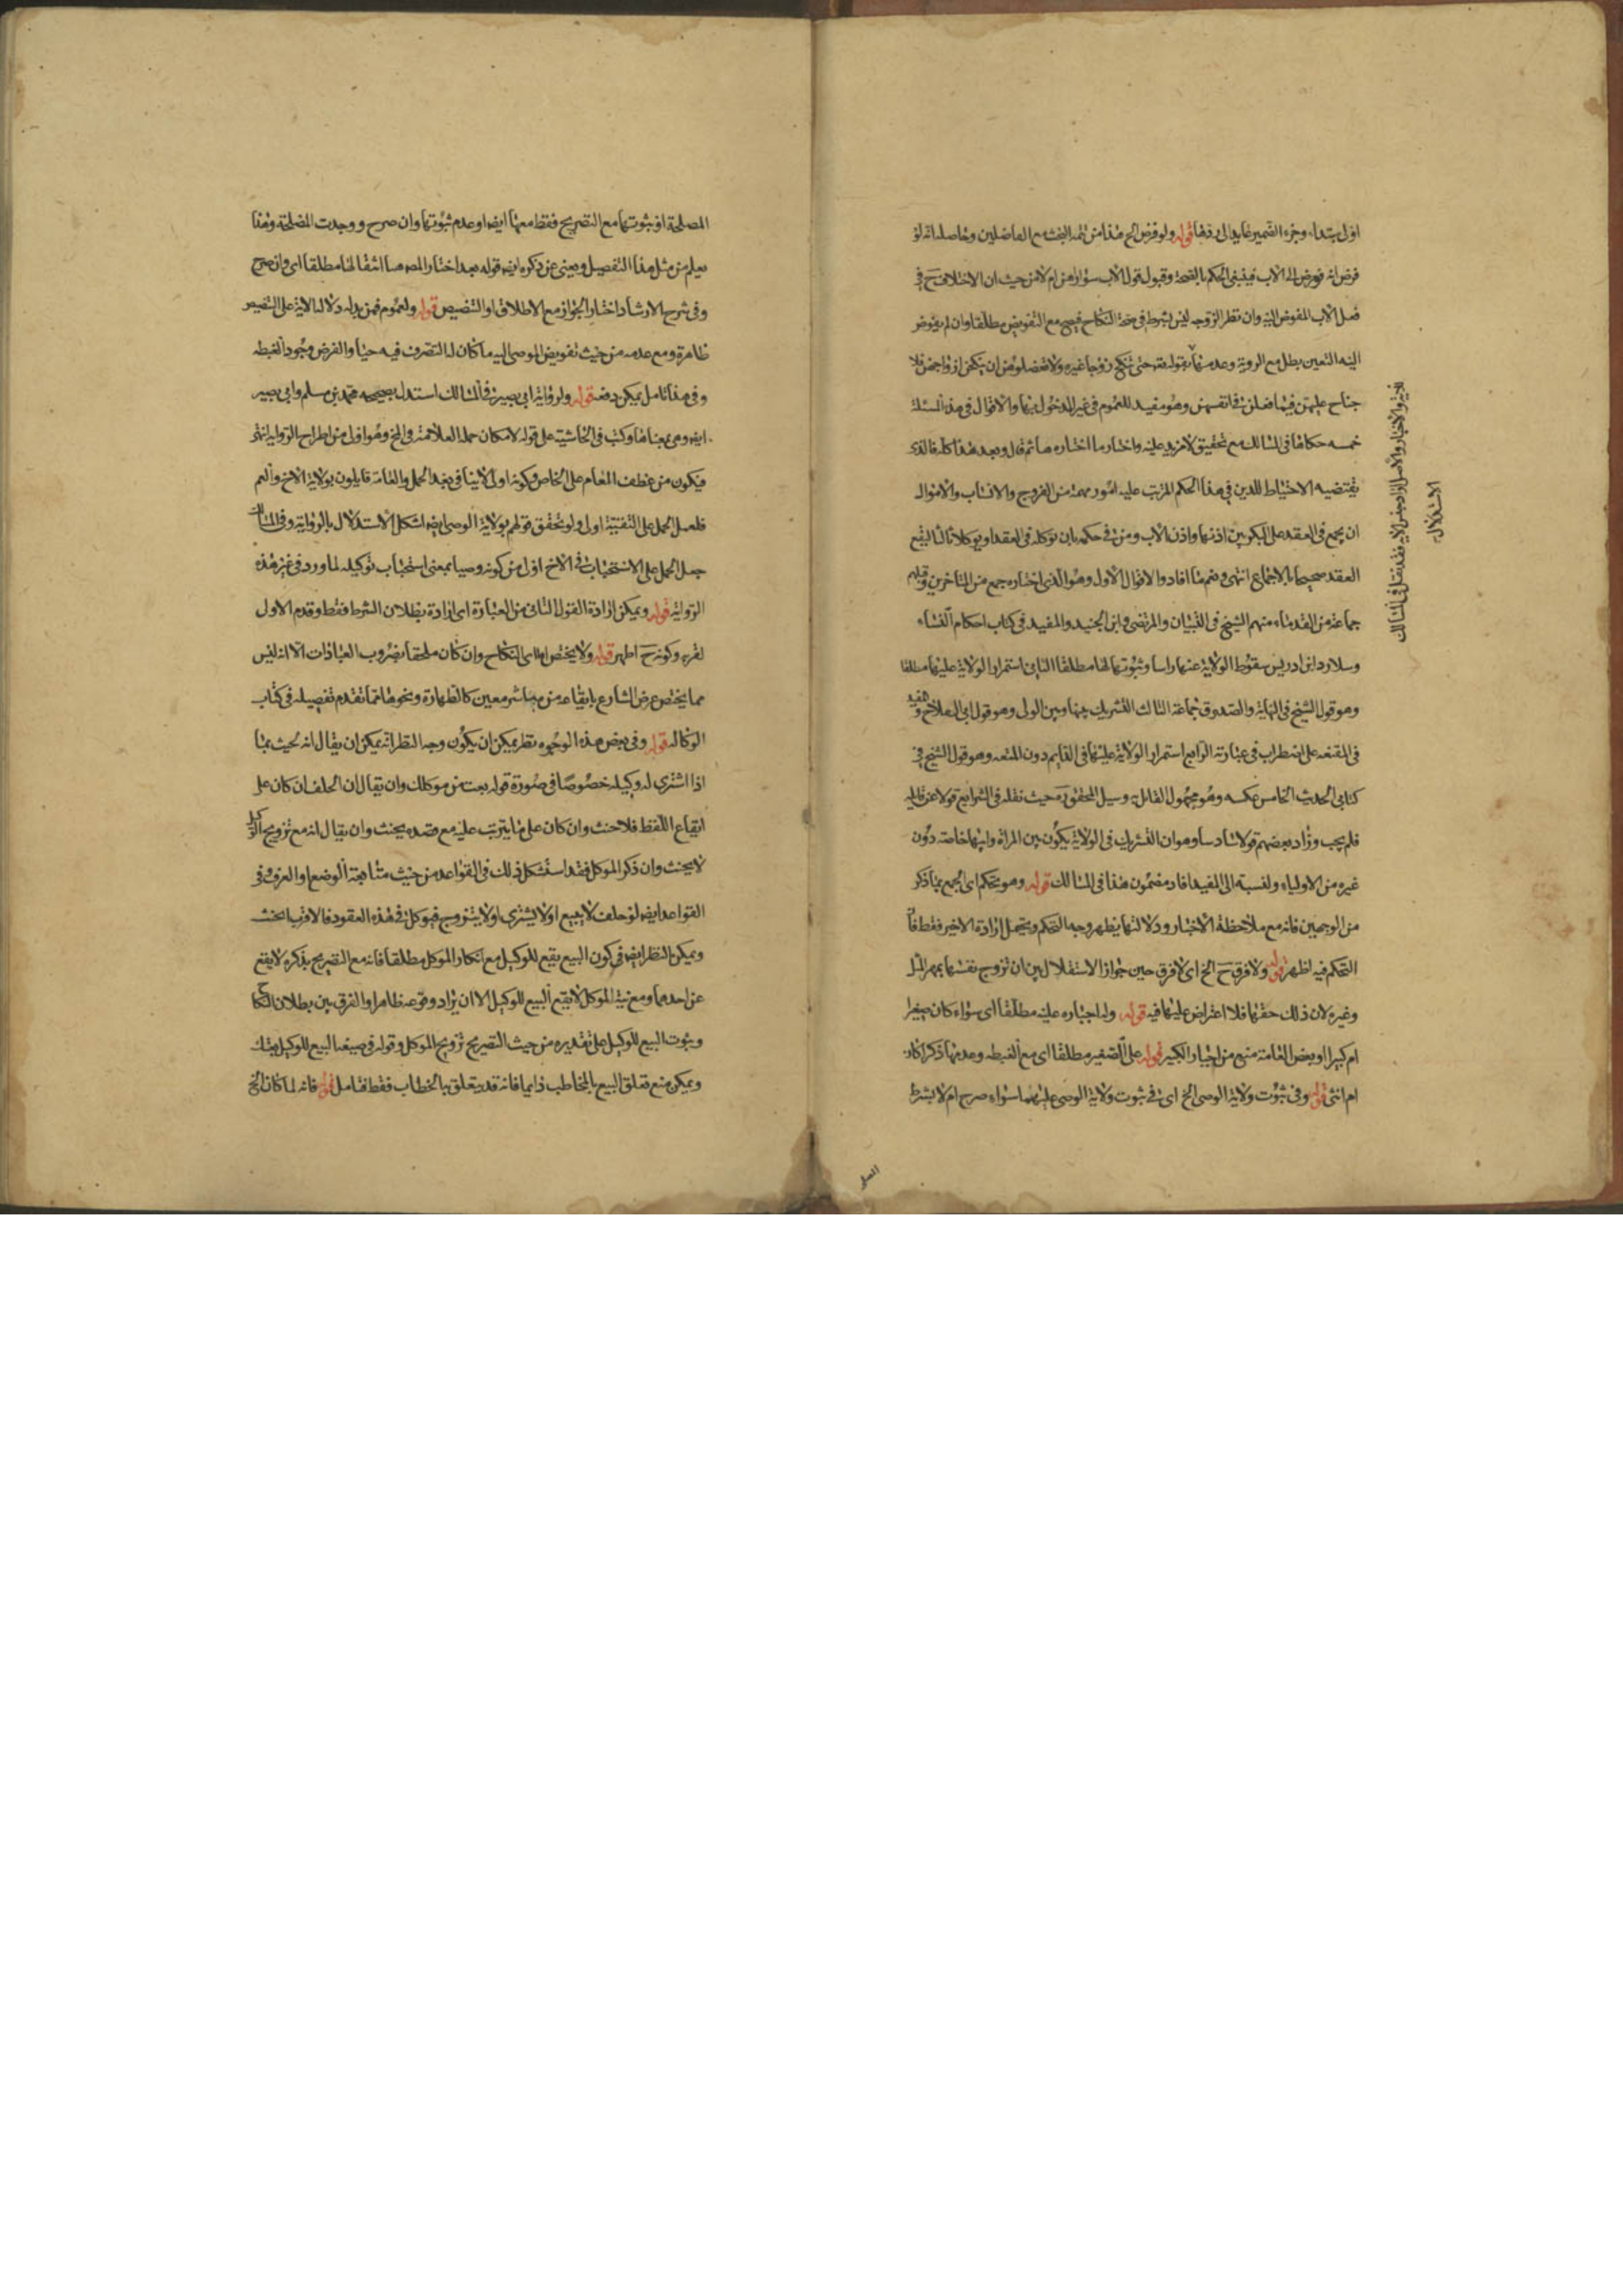 اولی ابتداء وجزء الضمیر عاید الی دفعها قوله ولو فرض الخ هذا من تتمة البحث مع الفاضلین وحاصله انه لو
فرض انه فوض الی الاب فینبغی الحکم بالصحة وقبول قول الاب سواء من ام لا من حیث ان الاختلاف ح فی
فعل الاب المفوض الیه وان نظر الزوجه لیس بشرط فی صحة النکاح فیصح مع التفویض مطلقا وان لم یفوض
الیه التعین بطل مع الرویة وعدمها بقوله تع حتی تنکح زوجا غیره ولا تعضلوهن ان ینکحن ازواجهن فلا
جناح علیهن فیما فعلن فی انفسهن وهو مفید للعموم فی غیر المدخول بها والاقوال فی هذه المسئلة
خمسه حکاها فی المسالک مع تحقیق لا مزید علیه واختار ما اختاره هنا ثم قال وبعد هذا کله فالذی
یقتضیه الاحتیاط للدین فی هذا الحکم المرتب علیه امور مهمة من الفروج والانساب والاموال
ان یجمع فی العقد علی البکر بین اذنها واذن الاب ومن فی حکمه بان توکله فی العقد او یوکلا ثالثا لیقع
العقد صحیحا بالاجماع انتهی وضم ما افاد والاقوال الاول وهو الذی اختاره جمع من المتاخرین وقبلهم
جماعة من القدماء منهم الشیخ فی التبیان والمرتضی وابن الجنید والمفید فی کتاب احکام النساء
وسلار وابن ادریس سقوط الولایة عنها راسا وثبوتها لها مطلقا الثانی استمرار الولایة علیها مطلقا
وهو قول الشیخ فی النهایة والصدوق جماعة الثالث التشریک بینها وبین الولی وهو قول ابی الصلاح والمفید
فی المقنعه علی اضطراب فی عبارته الرابع استمرار الولایة علیها فی الدایم دون المتعه وهو قول الشیخ فی
کتابی الحدیث الخامس عکسه وهو مجهول القائل وسئل المحقق ره حیث نقله فی الشرایع قولا عن قایله
فلم یجب وزاد بعضهم قولا سادسا وهو ان التشریک فی الولایة یکون بین المراة وابیها خاصة دون
غیره من الاولیاء ونسبه الی المفید افاد مضمون هذا فی المسالک قوله وهو تحکم ای الجمع بما ذکر
من الوجهین فانه مع ملاحظة الاخبار ودلالتها یظهر وجه التحکم ویحتمل ارادة الاخیر فقط فان
التحکم فیه اظهر قوله ولا فرق ح الخ ای لا فرق حین جواز الاستقلال بین ان تزوج نفسها بمهر المثل
وغیره لان ذلک حقها فلا اعتراض علیها فیه قوله وله اجباره علیه مطلقا ای سواء کان صغیرا
ام کبیرا وبعض العامة منع من اجبار الکبیر قوله علی الصغیر مطلقا ای مع الغبطه وعدمها ذکرا کان
ام انثی قوله وفی ثبوت ولایة الوصی الخ ای فی ثبوت ولایة الوصی علیهما سواء صرح ام لا بشرط
المصلحة او ثبوتها مع التصریح فقط معها ایضا او عدم ثبوتها وان صرح ووجدت المصلحة وهنا
یعلم من مثل هذا التفصیل ویغنی عن ذکره ایضا قوله بعد اختار المص هنا انتفائها مطلقا ای وان صرح
وفی شرح الارشاد اختار الجواز مع الاطلاق او التنصیص قوله ولعموم فمن بدله دلالة الایة علی التنصیص
ظاهرة ومع عدمه من حیث تفویض الموصی الیه ما کان له التصرف فیه حیا والفرض وجود الغبطه
وفی هذا تامل یمکن دفعه قوله ولروایة ابی بصیر فی المسالک استدل بصحیحه محمد بن مسلم وابی بصیر
ایضا وهی بمعناها وکتب فی الحاشیة علی قوله لامکان حمله العلامة الخ وهو اولی من اطراح الروایه انتهی
فیکون من عطف العام علی الخاص وکونه اولی لا ینافی بعد الحمل والعامة قایلون بولایة الاخ والعم
فلعل الحمل علی التقیة اولی ولو تحقق قولهم بولایة الوصی ایضا اشکل الاستدلال بالروایة وفی المسالک
جعل الحمل علی الاستحباب فی الاخ اولی من کونه وصیا بمعنی استحباب توکیله لما ورد فی غیر هذه
الروایة قوله ویمکن ارادة القول الثانی من العبارة ای ارادة بطلان الشرط فقط وقدم الاول
لقربه وکونه ح اظهر قوله ولا یختص ای النکاح وان کان ملحقا بضروب العبادات الا انه لیس
مما یختص غرض الشارع بایقاعه من مباشر معین کالطهارة ونحوها مما تقدم تفصیله فی کتاب
الوکاله قوله وفی بعض هذه الوجوه نظر یمکن ان یکون وجه النظر انه یمکن ان یقال انه یحنث بما
اذا اشتری له وکیله خصوصا فی صورة قوله بعت من موکلک وان یقال ان الحلف ان کان علی
ایقاع اللفظ فلا حنث وان کان علی ما یترتب علیه مع قصده یحنث وان یقال انه مع تزویج الوکیل
لا یحنث وان ذکر الموکل فقد استشکل ذلک فی القواعد من حیث متابعة الوضع او العرف وفی
القواعد ایضا لو حلف لا یبیع او لا یشتری او لا یتزوج فیوکل فی هذه العقود فالاقرب الحنث
ویمکن النظر ایضا فی کون البیع یقع للوکیل مع انکار الموکل مطلقا فانه مع التصریح بذکره لا یقع
عن احدهما ومع نیة الموکل لا یقع البیع للوکیل الا ان یراد وقوعه ظاهرا والفرق بین بطلان النکاح
وثبوت البیع للوکیل علی تقدیره من حیث التصریح تزویج الموکل وقوله فی صیغة البیع للوکیل بعتک
ویمکن منع تعلق البیع بالمخاطب دایما فانه قد یتعلق بالخطاب فقط فتامل قوله فانه لما کان الخ